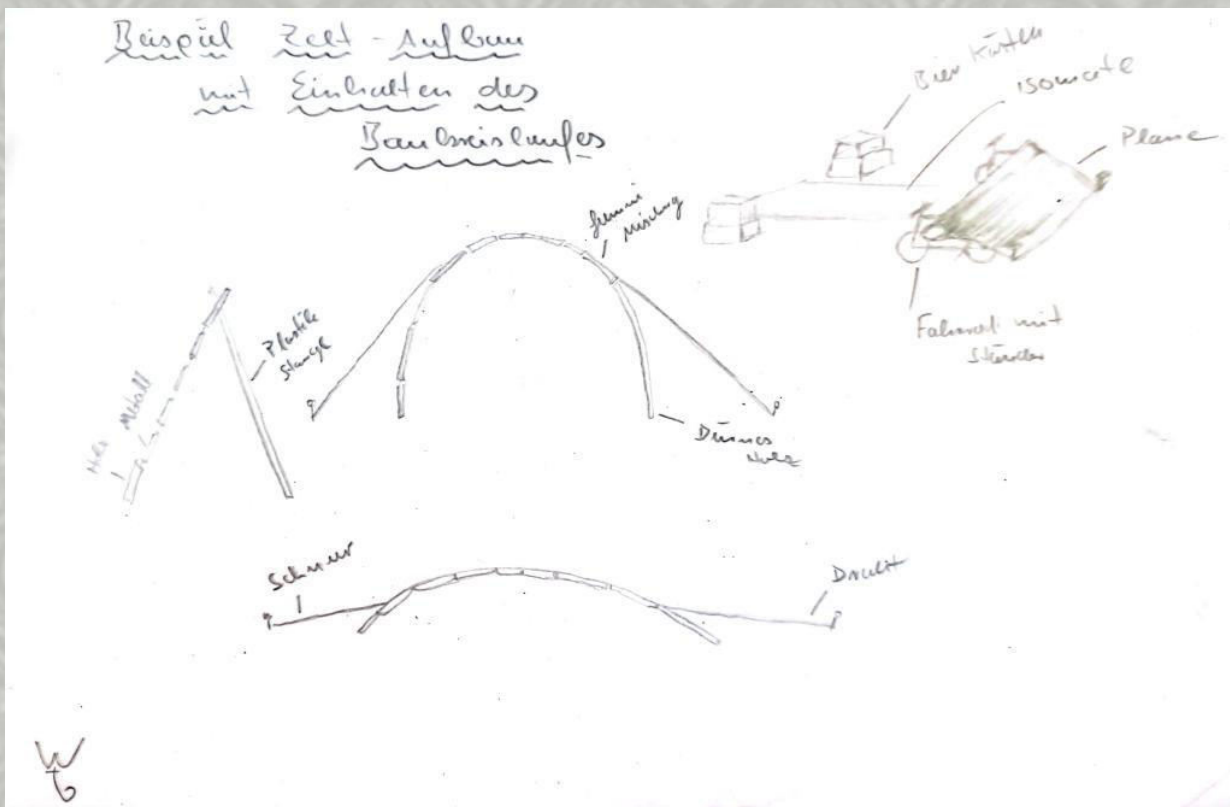 Beispiel Zelt-Aufbau
mit Einhalten des
Baukreislaufes
Bier Kästen
isomate
Plane
Fahrrad mit
Ständer
Gummi
Mischung
Plastik
Stange
Holz Metall
Dünnes
Holz
Schnur
Draht